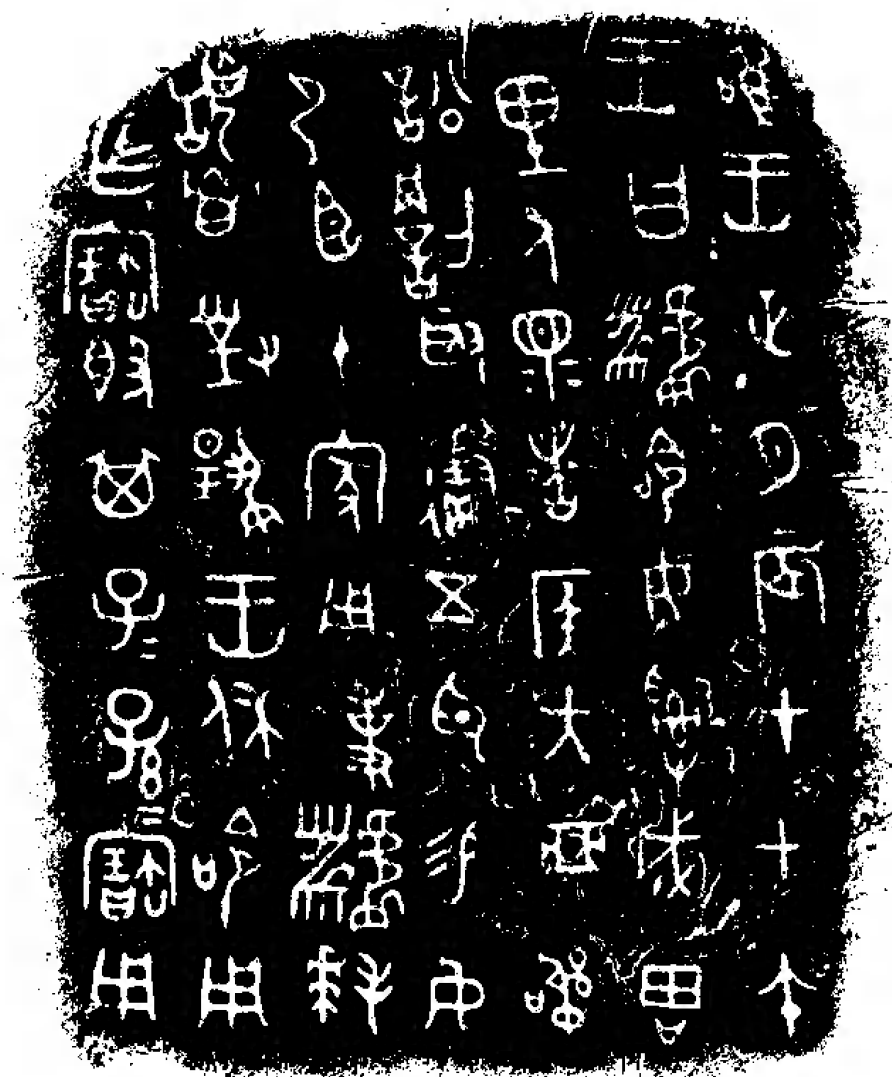 隹王正月辰才甲午
王曰𩰬命女𤔲成周
里人眔者侯大亞訊
訟罰取徵五鋝易女
尸臣十家用事𩰬拜
𩒨首對揚王休命用
乍寶簋其子子孫孫寶用